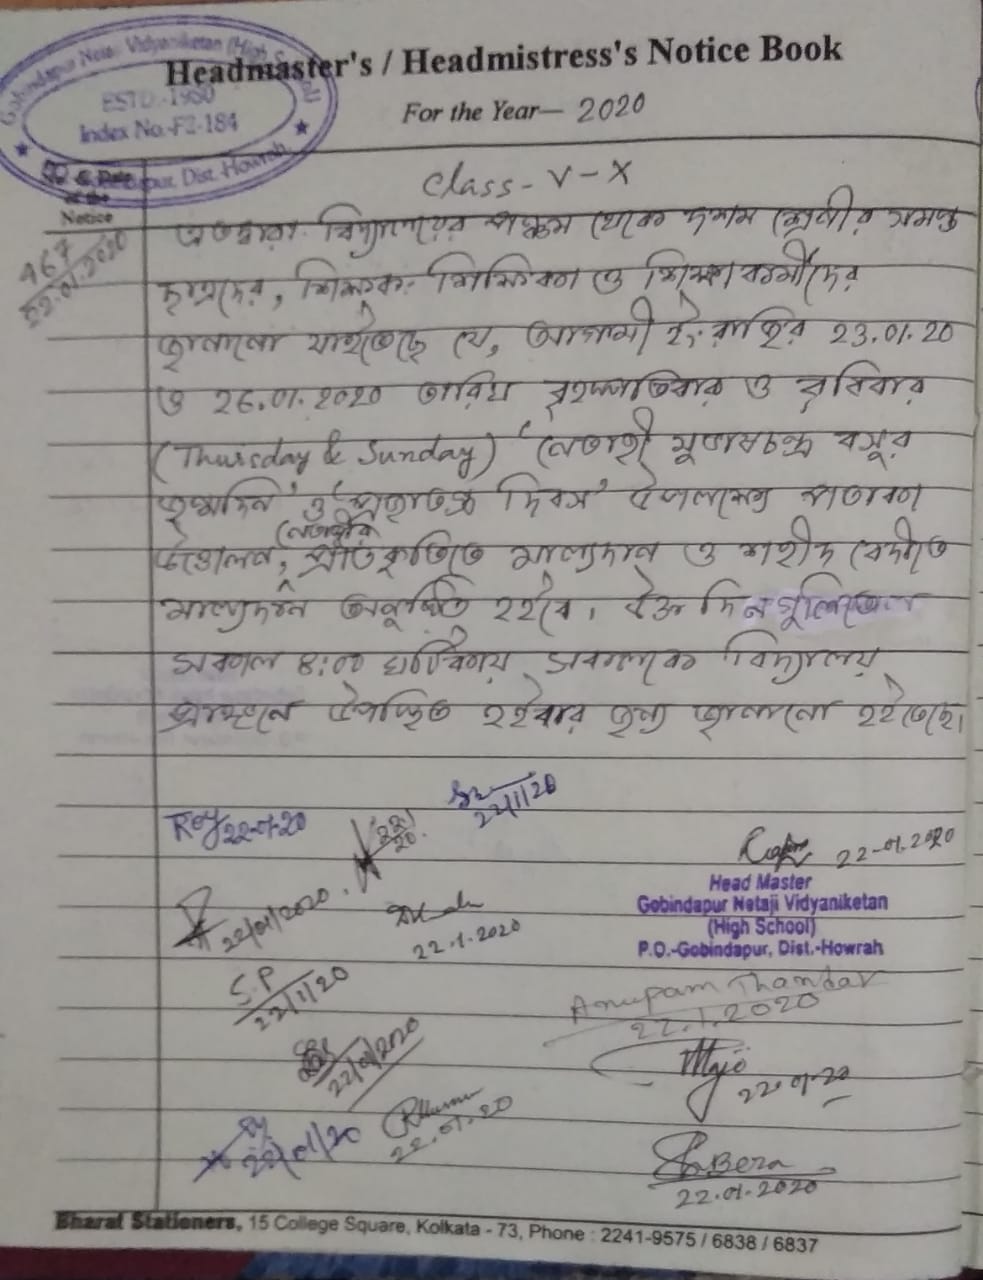 Gobindapur Netaji Vidyaniketan (High School)
ESTD.-1980
Index No.-F2-184
Dist. Howrah
Headmaster's / Headmistress's Notice Book
For the Year— 2020
Notice
467
Class - V - X
এতদ্বারা বিদ্যালয়ের পঞ্চম থেকে দশম শ্রেণীর সমস্ত
ছাত্রদের, শিক্ষক শিক্ষিকা ও শিক্ষাকর্মীদের
জানানো যাইতেছে যে, আগামী ইং রাজির 23.01.20
ও 26.01.2020 তারিখ বৃহস্পতিবার ও রবিবার
(Thursday & Sunday) 'নেতাজী সুভাষচন্দ্র বসুর
জন্মদিন' ও 'প্রজাতন্ত্র দিবস' উপলক্ষ্যে পতাকা
নেতাজীর
উত্তোলন, প্রতিকৃতিতে মাল্যদান ও শহীদ বেদীতে
মাল্যদান অনুষ্ঠিত হইবে। ঐ দিনগুলিতে
সকাল ৪:00 ঘটিকায় সকলকে বিদ্যালয়
প্রাঙ্গনে উপস্থিত হইবার জন্য জানানো হইতেছে।
22/1/20
Roy 22-01-20
22-01-2020
Head Master
Gobindapur Netaji Vidyaniketan
(High School)
P.O.-Gobindapur, Dist.-Howrah
22/01/2020
22.1.2020
S.P
22/1/20
Anupam Thandar
22.1.2020
22/01/2020
22.01.20
22.01.20
22/01/20
Bera
22.01.2020
Bharat Stationers, 15 College Square, Kolkata - 73, Phone : 2241-9575 / 6838 / 6837